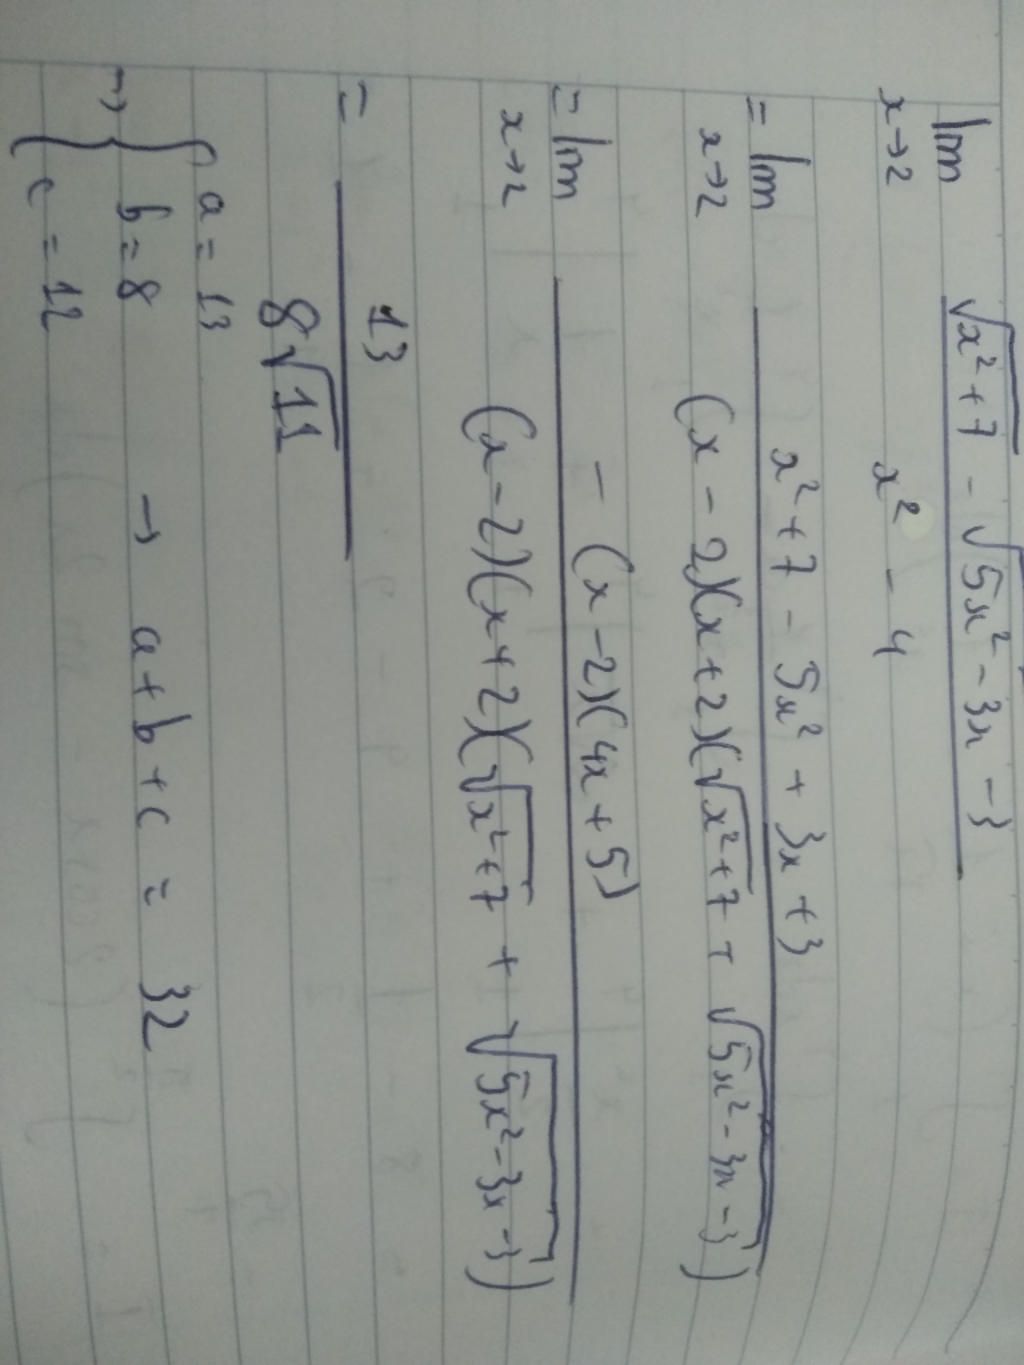 lim x→2 (√(x² + 7) - √(5x² - 3x - 3)) / (x² - 4)
= lim x→2 (x² + 7 - 5x² + 3x + 3) / ((x - 2)(x + 2)(√(x² + 7) + √(5x² - 3x - 3)))
= lim x→2 (-(x - 2)(4x + 5)) / ((x - 2)(x + 2)(√(x² + 7) + √(5x² - 3x - 3)))
= 13 / (8√11)
→ { a = 13
b = 8 → a + b + c = 32
c = 12